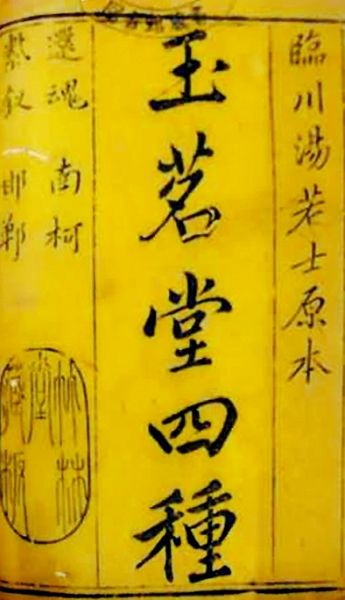 臨川湯若士原本
玉茗堂四種
還魂 南柯
紫釵 邯鄲
竹林堂藏板